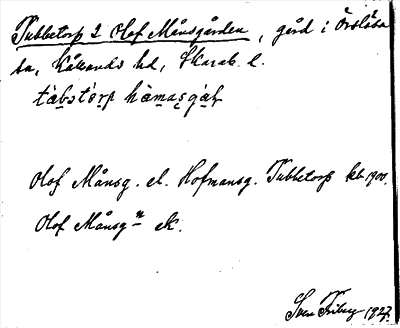 Tubbetorp 2 Olof Månsgården, gård i Örslösa
sn, Kållands hd, Skarab. l.
tàbstòrp hàmasgàḷ
Olof Månsg. el. Hofmansg. Tubbetorp kb 1900.
Olof Månsgⁿ ek.
Sven Friberg 1927.